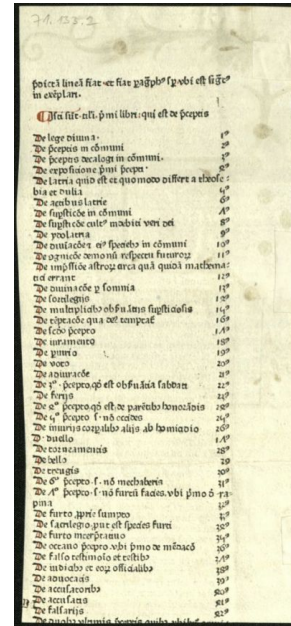 71.133.2
p̄dictā lineā fiat et fiat parag̅phꝰ sꝑ vbi est sig̅tꝰ
in exēplari.
Isti sūt tīli p̄mi libri: qui est de p̄ceptis
De lege diuina. 1º
De p̄ceptis in cōmuni 2º
De p̄ceptis decalogi in cōmuni. 3º
De expositione p̄mi p̄cepti. 4º
De latria quid est et quomodo differt a theose-
bia et dulia 5º
De actibus latrie 6º
De sup̄sticōe in cōmuni 7º
De sup̄sticōe cultꝰ indebiti veri dei 8º
De ydolatria 9º
De diuinacōe et eiꝰ speciebꝫ in cōmuni 10º
De demonū respectu futurorꝝ 11º
De astrorꝝ circa quā quidā mathema-
tici errant 12º
De diuinacōe ꝑ somnia 13º
De sortilegijs 14º
De multiplicibꝫ obẜuātijs sup̄sticiosis 15º
De tēptacōe qua deꝰ temptat᷑ 16º
De scd̄o p̄cepto 17º
De iuramento 18º
De ꝑiurio 19º
De voto 20º
De adiuracōe 21º
De 3º. p̄cepto. qd̄ est obẜuācia sabbati 22º
De ferijs 23º
De 4º p̄cepto. qd̄ est de parētibꝫ honorādis 24º
De 5º p̄cepto .s. nō occides 25º
De iniurijs corꝑalibꝫ alijs ab homicidio 26º
D duello 27º
De torneamentis 28º
De bello 29
De treugis 30º
De 6º p̄cepto .s. nō mechaberis 31º
De 7º p̄cepto .s. nō furtū facies. vbi p̄mo d̄ ra-
pina 32º
De furto ꝓprie sumpto 33º
De sacrilegio. put est species furti 34º
De furto interp̄tatiuo 35º
De octauo p̄cepto. vbi p̄mo de mēdacō 36º
De falso testimoio et testibꝫ 37º
De iudicibꝫ et eorꝝ officialibꝫ 38º
De aduocatis 39º
De accusatoribꝫ 40º
De accusatis 41º
De falsarijs 42º
De duobꝫ vltimis p̄ceptis quibꝫ